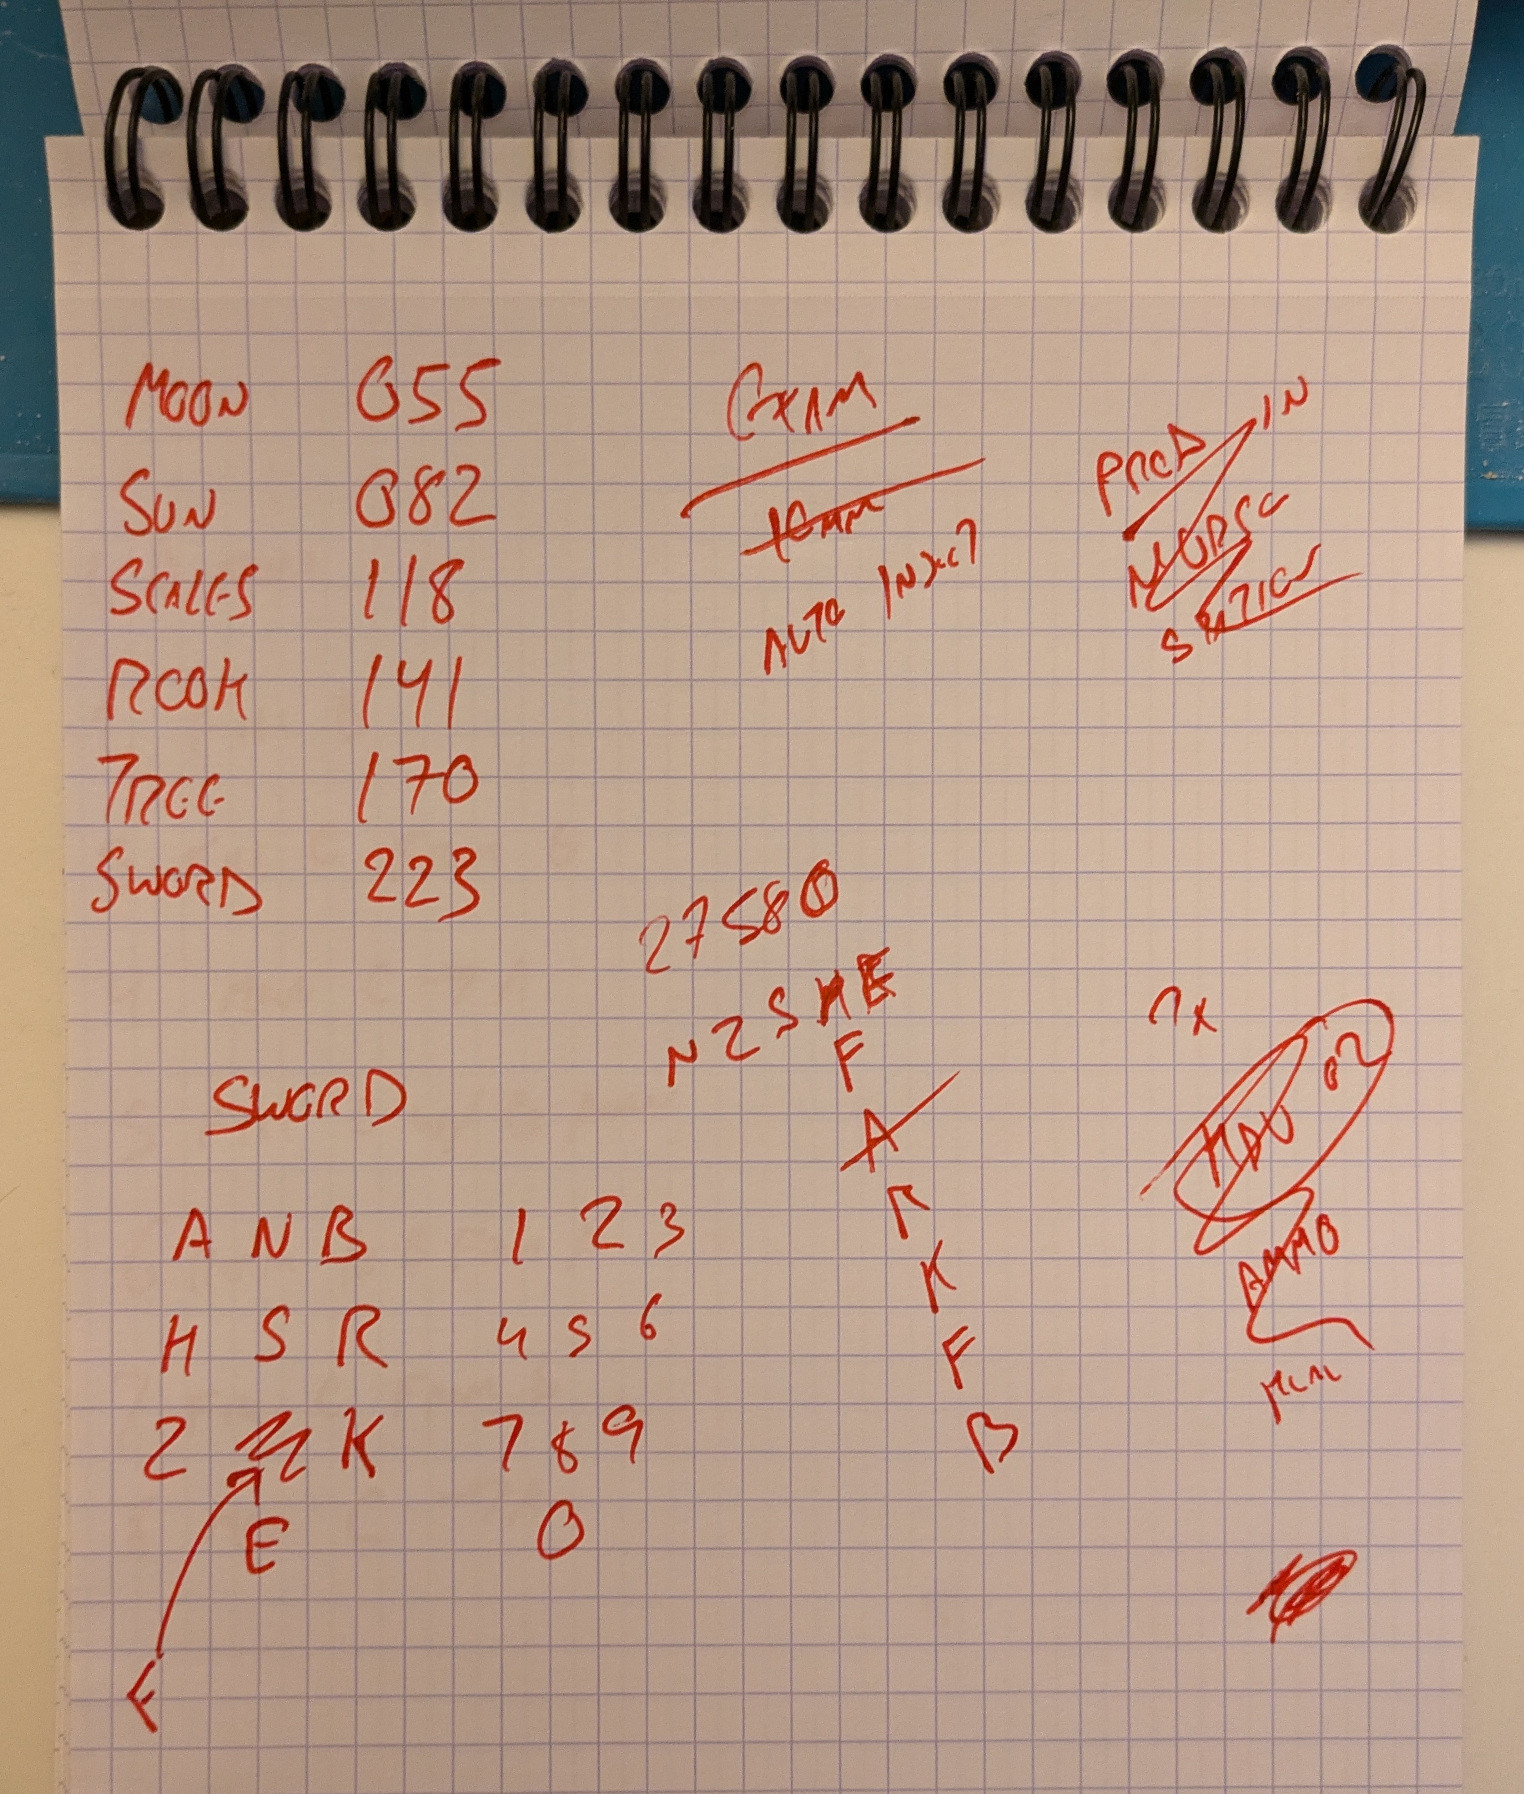 MOON 055
SUN 082
SCALES 118
ROOK 141
TREE 170
SWORD 223
EXAM
AUTO INJECT
PROD IN
NURSE
STATION
27580
NZSHE
F
A
R
K
F
B
SWORD
A N B 1 2 3
H S R 4 5 6
Z K 7 8 9
E 0
F
RX
02
AMMO